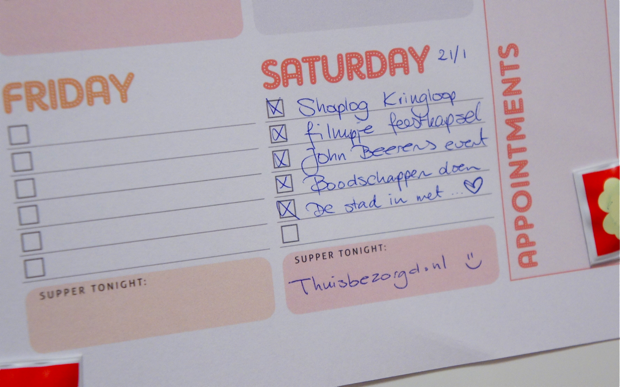 FRIDAY
SUPPER TONIGHT:
SATURDAY 21/1
Shoplog Kringloop
filmpje feestkapsel
John Beerens event
Boodschappen doen
De stad in met ... ♡
SUPPER TONIGHT:
Thuisbezorgd.nl :)
APPOINTMENTS